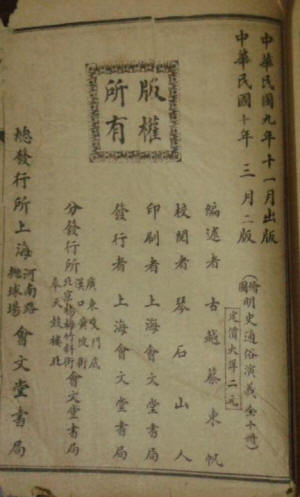 中華民國九年十一月出版
中華民國十年三月二版
繪圖
明史通俗演義(全十冊)
定價大洋二元
版權所有
編述者 古越蔡東帆
校閱者 琴石山人
印刷者 上海會文堂書局
發行者 上海會文堂書局
分發行所
廣東雙門底
漢口黃陂街
北京楊梅竹斜街
奉天鼓樓北
會文堂書局
總發行所上海
河南路
拋球場
會文堂書局